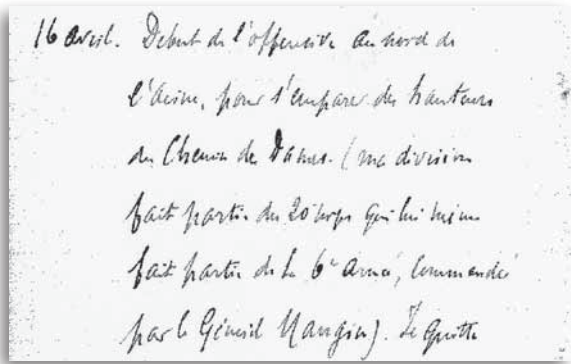 16 avril. Debut de l'offensive au nord de
l'Aisne, pour s'emparer des hauteurs
du Chemin des Dames. (ma division
fait partie du 20e corps qui lui même
fait partie de la 6e armée, commandée
par le Général Mangin). Je quitte